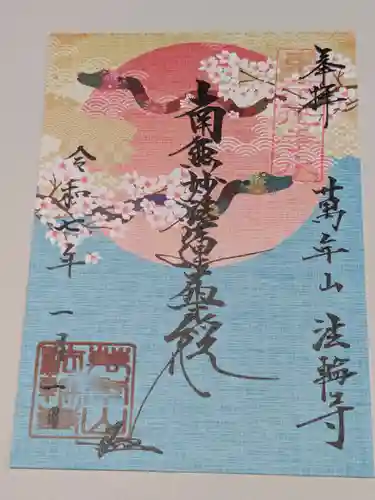 奉拝
萬年山 法輪寺
南無妙法蓮華経
令和七年 一月一日